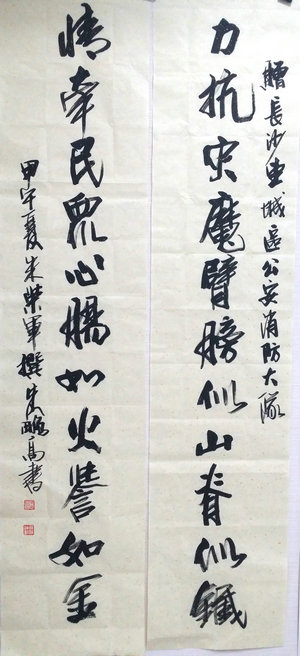 贈長沙城區公安消防大隊
力抗灾魔臂膀似山脊似鐵
情牽民眾心腸如火譽如金
甲午夏朱榮軍撰朱高書